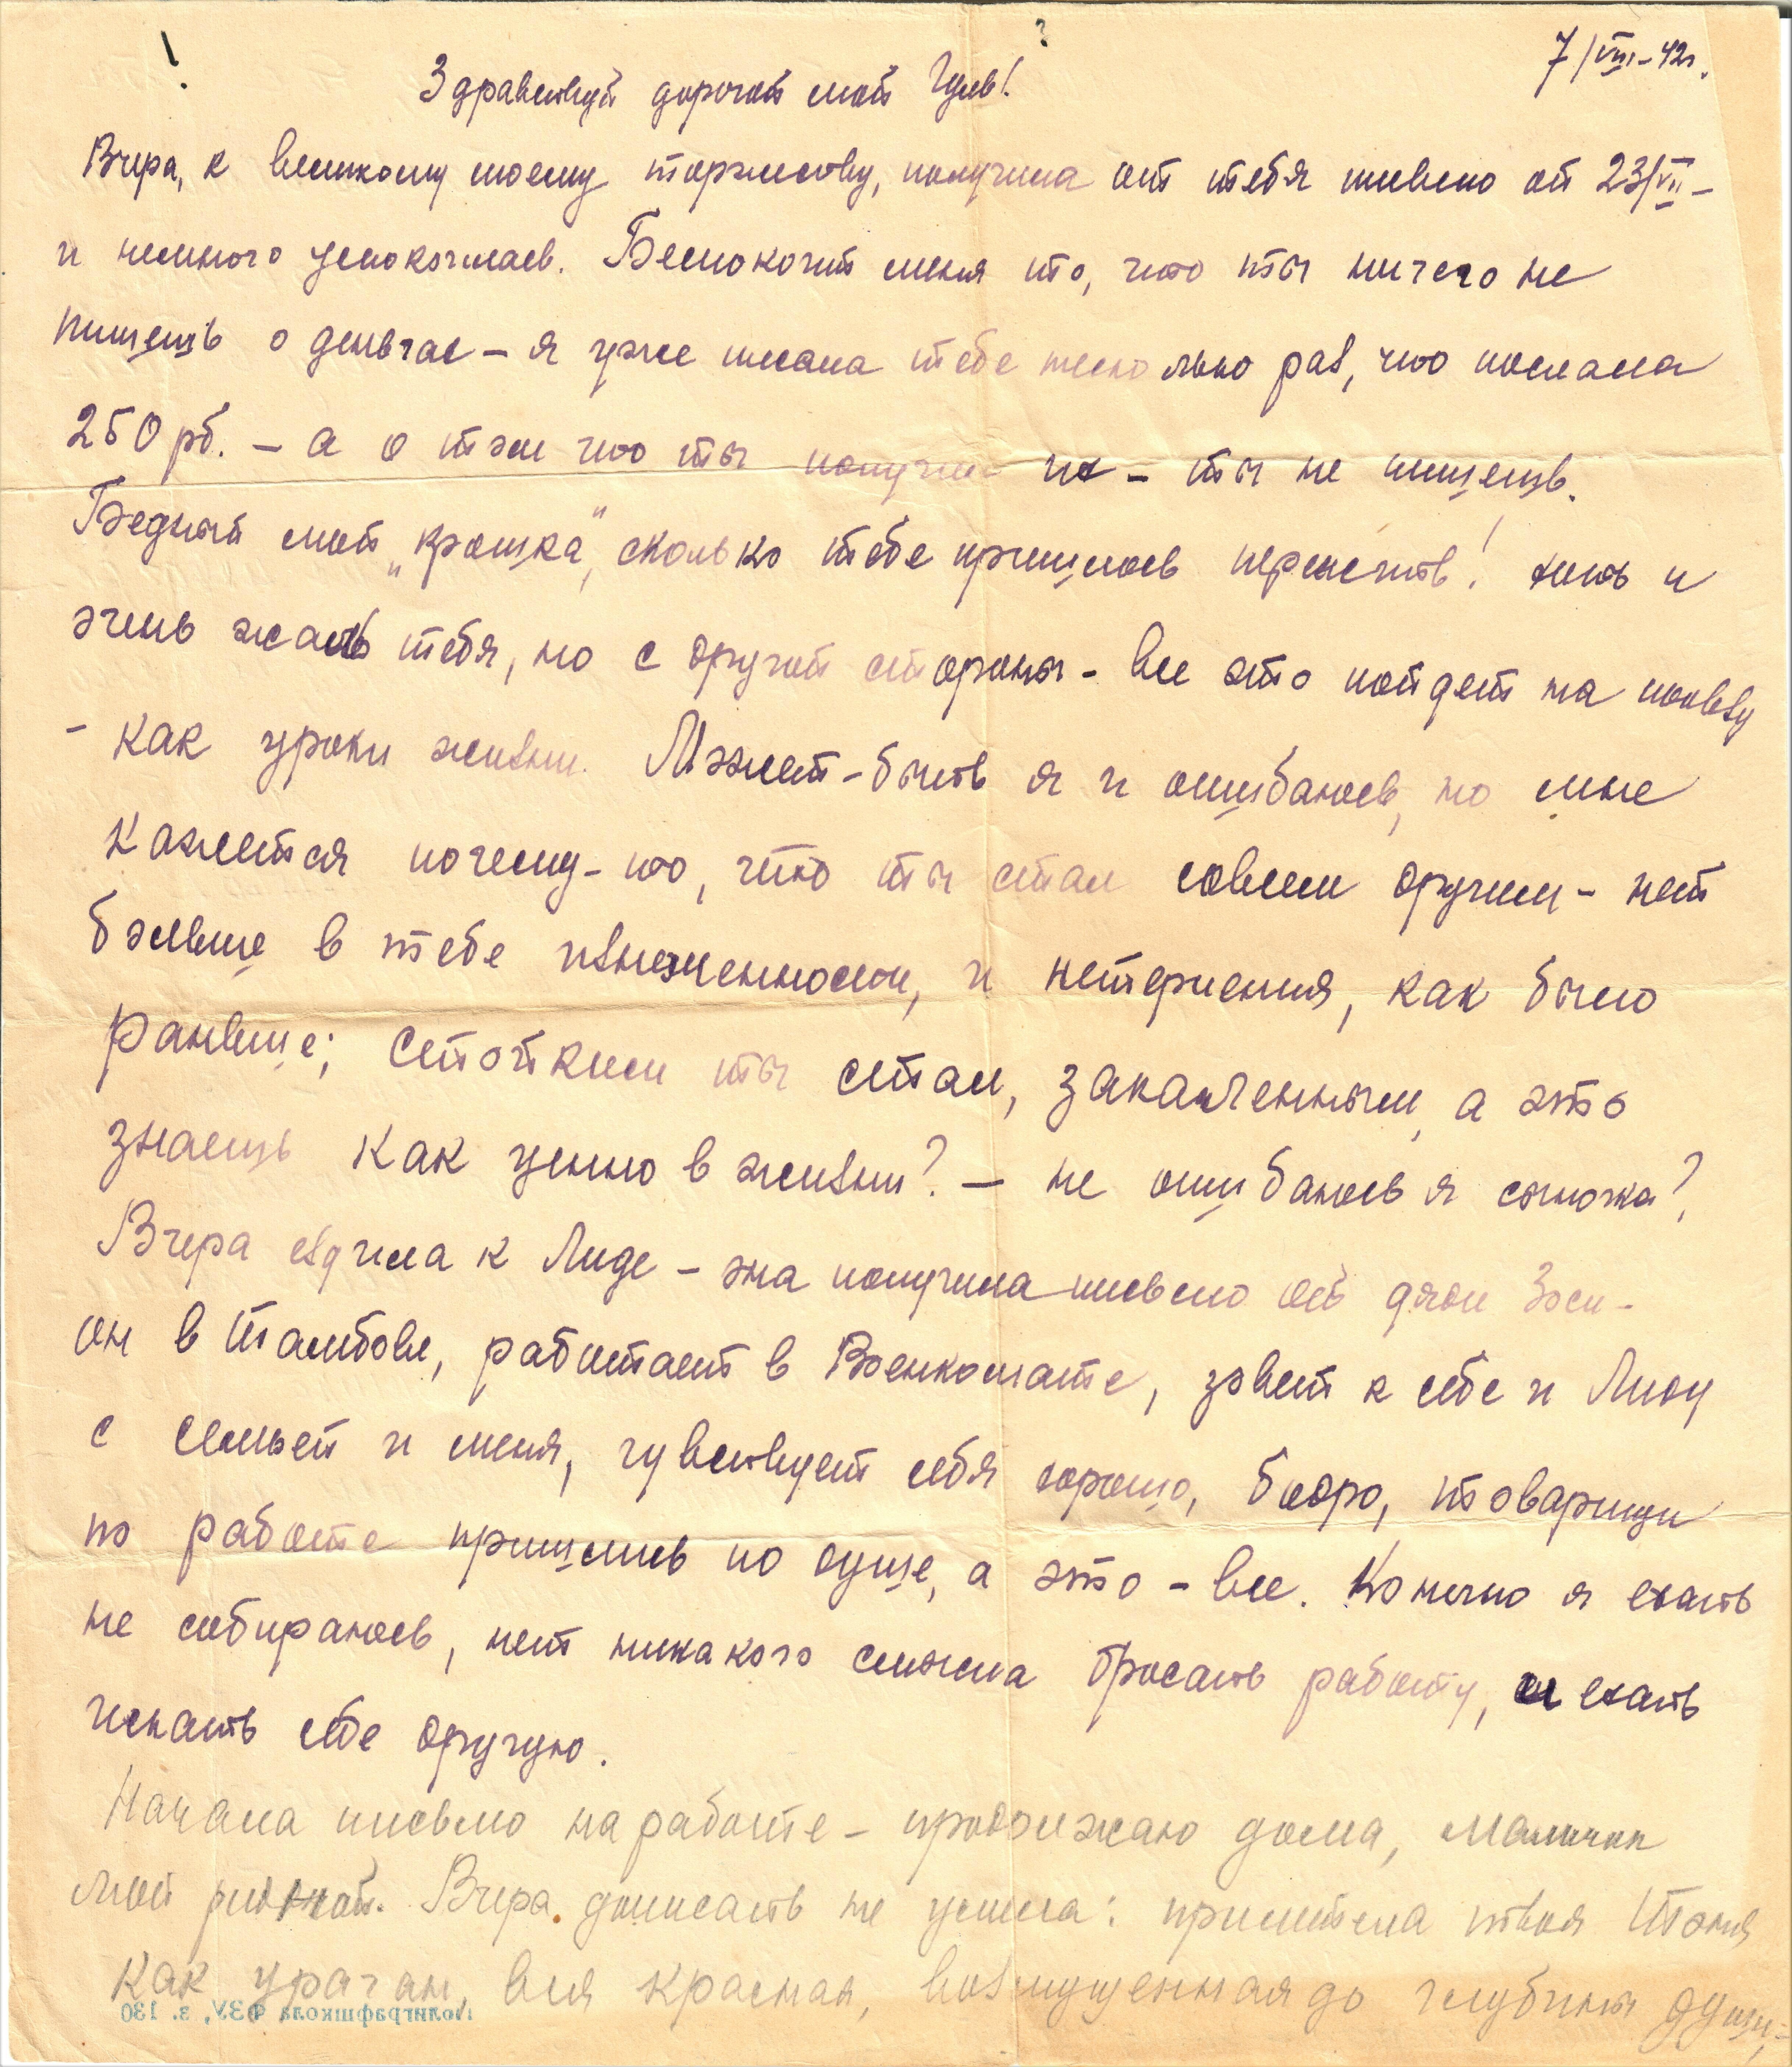 7/VIII-42г.
Здравствуй дорогой мой Чуль!
Вчера, к великому моему торжеству, получила от тебя письмо от 23/VII –
и немного успокоилась. Беспокоит меня то, что ты ничего не
пишешь о деньгах – я уже писала тебе несколько раз, что послала
250 рб. – а о том что ты получил их – ты не пишешь.
Бедный мой „крошка", сколько тебе пришлось перенести! хоть и
очень жаль тебя, но с другой стороны – все это пойдет на пользу
– как уроки жизни. Может-быть я и ошибаюсь, но мне
кажется почему-то, что ты стал совсем другим – нет
больше в тебе изнеженности, и нетерпения, как было
раньше; стойким ты стал, закаленным, а это
знаешь как ценно в жизни? – не ошибаюсь я сыночка?
Вчера ездила к Лиде – она получила письмо от дяди Зоси –
он в Тамбове, работает в Военкомате, зовет к себе и Лиду
с семьей и меня, чувствует себя хорошо, бодро, товарищи
по работе пришлись по душе, а это – все. Конечно я ехать
не собираюсь, нет никакого смысла бросать работу, и ехать
искать себе другую.
Начала письмо на работе – продолжаю дома, мальчик
мой родной. Вчера дописать не успела: прилетела твоя Тоня
как ураган, вся красная, возмущенная до глубины души,
Полиграфшкола ФЗУ, з. 130